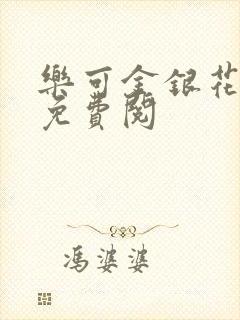 樂可金銀花
免費閱
馮婆婆